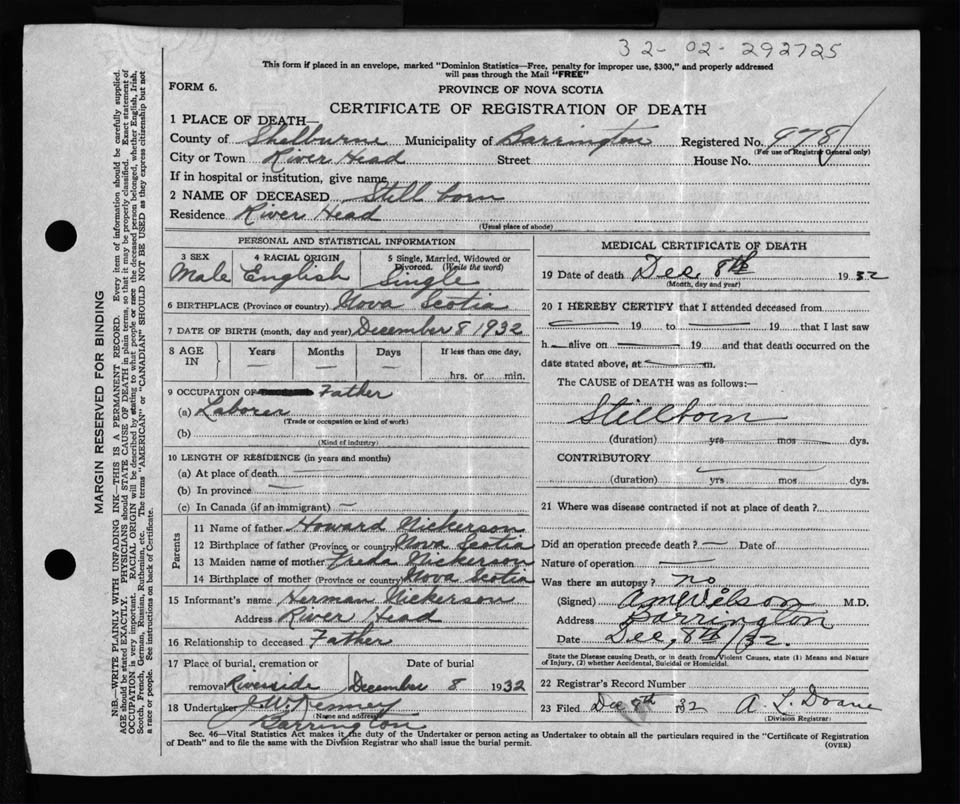 32-02-292725
This form if placed in an envelope, marked "Dominion Statistics—Free, penalty for improper use, $300," and properly addressed
will pass through the Mail "FREE"
FORM 6.
PROVINCE OF NOVA SCOTIA
CERTIFICATE OF REGISTRATION OF DEATH
1 PLACE OF DEATH—
County of Shelburne Municipality of Barrington Registered No. 978
(For use of Registrar General only)
City or Town River Head Street House No.
If in hospital or institution, give name
2 NAME OF DECEASED Still born
Residence River Head
(Usual place of abode)
PERSONAL AND STATISTICAL INFORMATION
3 SEX 4 RACIAL ORIGIN 5 Single, Married, Widowed or
Divorced. (Write the word)
Male English Single
6 BIRTHPLACE (Province or country) Nova Scotia
7 DATE OF BIRTH (month, day and year) December 8 1932
8 AGE IN Years Months Days If less than one day,
— — — hrs. or min.
9 OCCUPATION OF Father
(a) Laborer
(Trade or occupation or kind of work)
(b)
(Kind of industry)
10 LENGTH OF RESIDENCE (in years and months)
(a) At place of death —
(b) In province —
(c) In Canada (if an immigrant) —
Parents
11 Name of father Howard Nickerson
12 Birthplace of father (Province or country) Nova Scotia
13 Maiden name of mother Freda Nickerson
14 Birthplace of mother (Province or country) Nova Scotia
15 Informant's name Herman Nickerson
Address River Head
16 Relationship to deceased Father
17 Place of burial, cremation or Date of burial
removal Riverside December 8 1932
18 Undertaker J. W. Kenney
(Name and address)
Barrington
MEDICAL CERTIFICATE OF DEATH
19 Date of death Dec 8th 1932
(Month, day and year)
20 I HEREBY CERTIFY that I attended deceased from
— 19 to — 19 that I last saw
h— alive on — 19 — and that death occurred on the
date stated above, at — m.
The CAUSE OF DEATH was as follows:—
Stillborn
(duration) yrs mos dys.
CONTRIBUTORY
(duration) yrs. mos dys.
21 Where was disease contracted if not at place of death?
Did an operation precede death? — Date of
Nature of operation —
Was there an autopsy? no
(Signed) A M Wilson M.D.
Address Barrington
Date Dec, 8th /32.
State the Disease causing Death, or in death from Violent Causes, state (1) Means and Nature
of Injury, (2) whether Accidental, Suicidal or Homicidal.
22 Registrar's Record Number
23 Filed Dec 8th 1932 A. L. Doane
(Division Registrar)
Sec. 46—Vital Statistics Act makes it the duty of the Undertaker or person acting as Undertaker to obtain all the particulars required in the "Certificate of Registration
of Death" and to file the same with the Division Registrar who shall issue the burial permit.
(OVER)
MARGIN RESERVED FOR BINDING
N.B.—WRITE PLAINLY WITH UNFADING INK—THIS IS A PERMANENT RECORD. Every item of information should be carefully supplied.
AGE should be stated EXACTLY. PHYSICIANS should STATE CAUSE OF DEATH in plain terms, so that it may be properly classified. Exact statement of
OCCUPATION is very important. RACIAL ORIGIN will be described by stating to what people or race the deceased person belonged, whether English, Irish,
Scotch, French, German, Russian, Ruthenian, etc. The terms "AMERICAN" or "CANADIAN" SHOULD NOT BE USED as they express citizenship but not
a race or people. See instructions on back of Certificate.